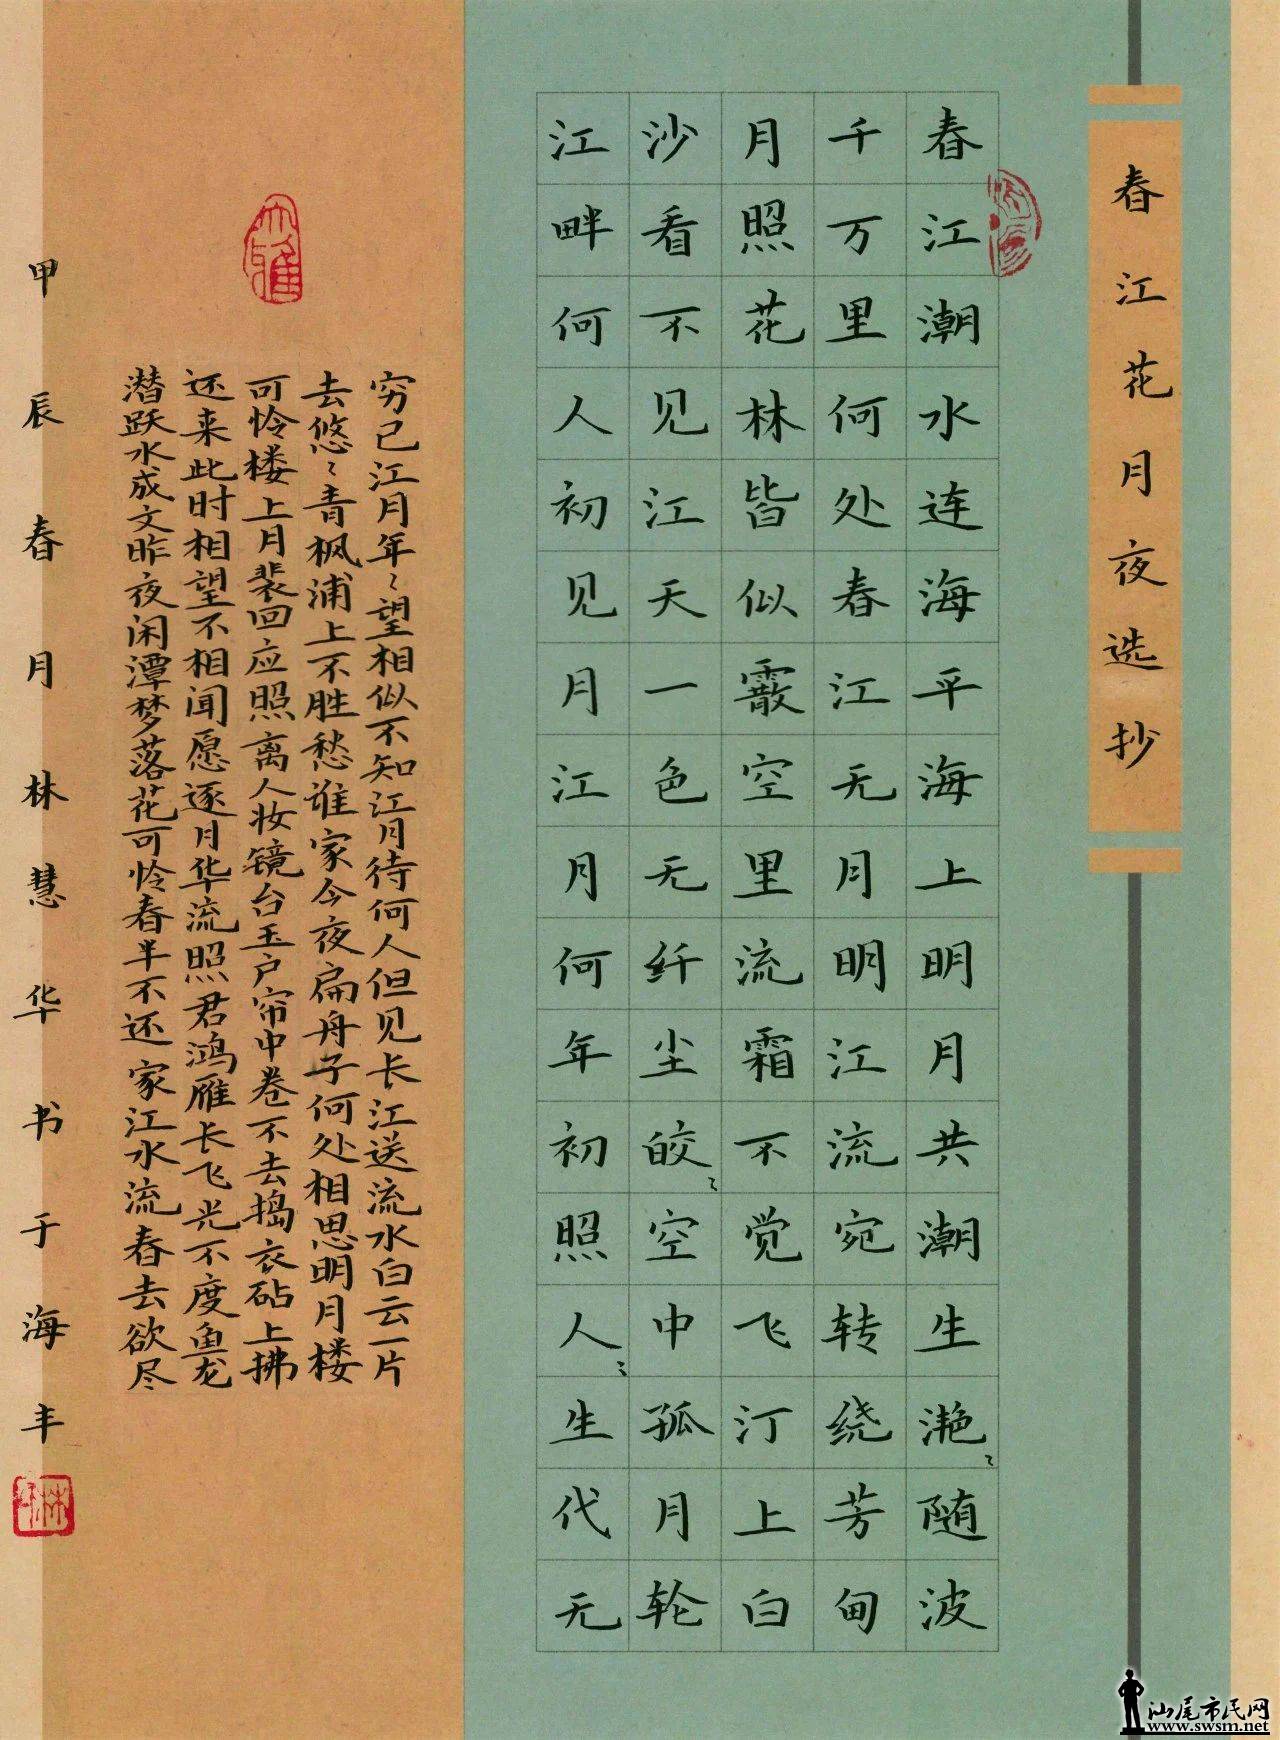 春江花月夜选抄
春江潮水连海平海上明月共潮生滟〻随波
千万里何处春江无月明江流宛转绕芳甸
月照花林皆似霰空里流霜不觉飞汀上白
沙看不见江天一色无纤尘皎〻空中孤月轮
江畔何人初见月江月何年初照人〻生代无
穷已江月年〻望相似不知江月待何人但见长江送流水白云一片
去悠〻青枫浦上不胜愁谁家今夜扁舟子何处相思明月楼
可怜楼上月裴回应照离人妆镜台玉户帘中卷不去捣衣砧上拂
还来此时相望不相闻愿逐月华流照君鸿雁长飞光不度鱼龙
潜跃水成文昨夜闲潭梦落花可怜春半不还家江水流春去欲尽
大雅
甲辰春月林慧华书于海丰
汕尾市民网
www.swsm.net